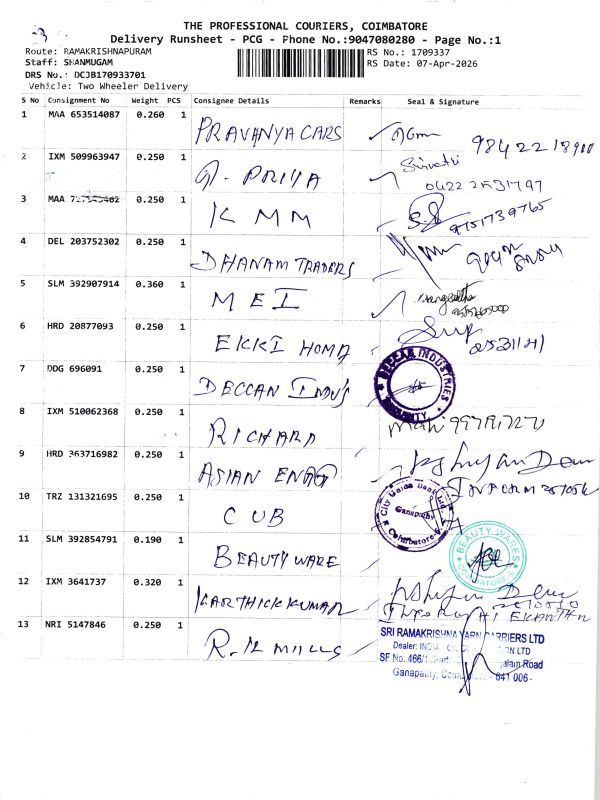 THE PROFESSIONAL COURIERS, COIMBATORE
Delivery Runsheet - PCG - Phone No.:9047080280 - Page No.:1
Route: RAMAKRISHNAPURAM
RS No.: 1709337
Staff: SHANMUGAM
RS Date: 07-Apr-2026
DRS No.: DCJB170933701
Vehicle: Two Wheeler Delivery
S No Consignment No Weight PCS Consignee Details Remarks Seal & Signature
1 MAA 653514087 0.260 1 PRAVANYA CARS
2 IXM 509963947 0.250 1 PRIYA
0422 2531797
3 MAA 0.250 1 K MM
9751739765
4 DEL 203752302 0.250 1 DHANAM TRADERS
5 SLM 392907914 0.360 1 MEI
6 HRD 20877093 0.250 1 EKKI HOMA
7 DDG 696091 0.250 1 DECCAN INDU'S
DECCAN INDUSTRIES
8 IXM 510062368 0.250 1 RICHARD
9 HRD 363716982 0.250 1 ASIAN ENGG
10 TRZ 131321695 0.250 1 CUB
City Union Bank Ltd
Ganapathy
Coimbatore
11 SLM 392854791 0.190 1 BEAUTY WARE
BEAUTY WARES
COIMBATORE
12 IXM 3641737 0.320 1 KARTHICK KUMAR
13 NRI 5147846 0.250 1 R.K MILLS
SRI RAMAKRISHNA YARN CARRIERS LTD
Dealer: LTD
SF No. 466/1 Road
Ganapathy, 641 006